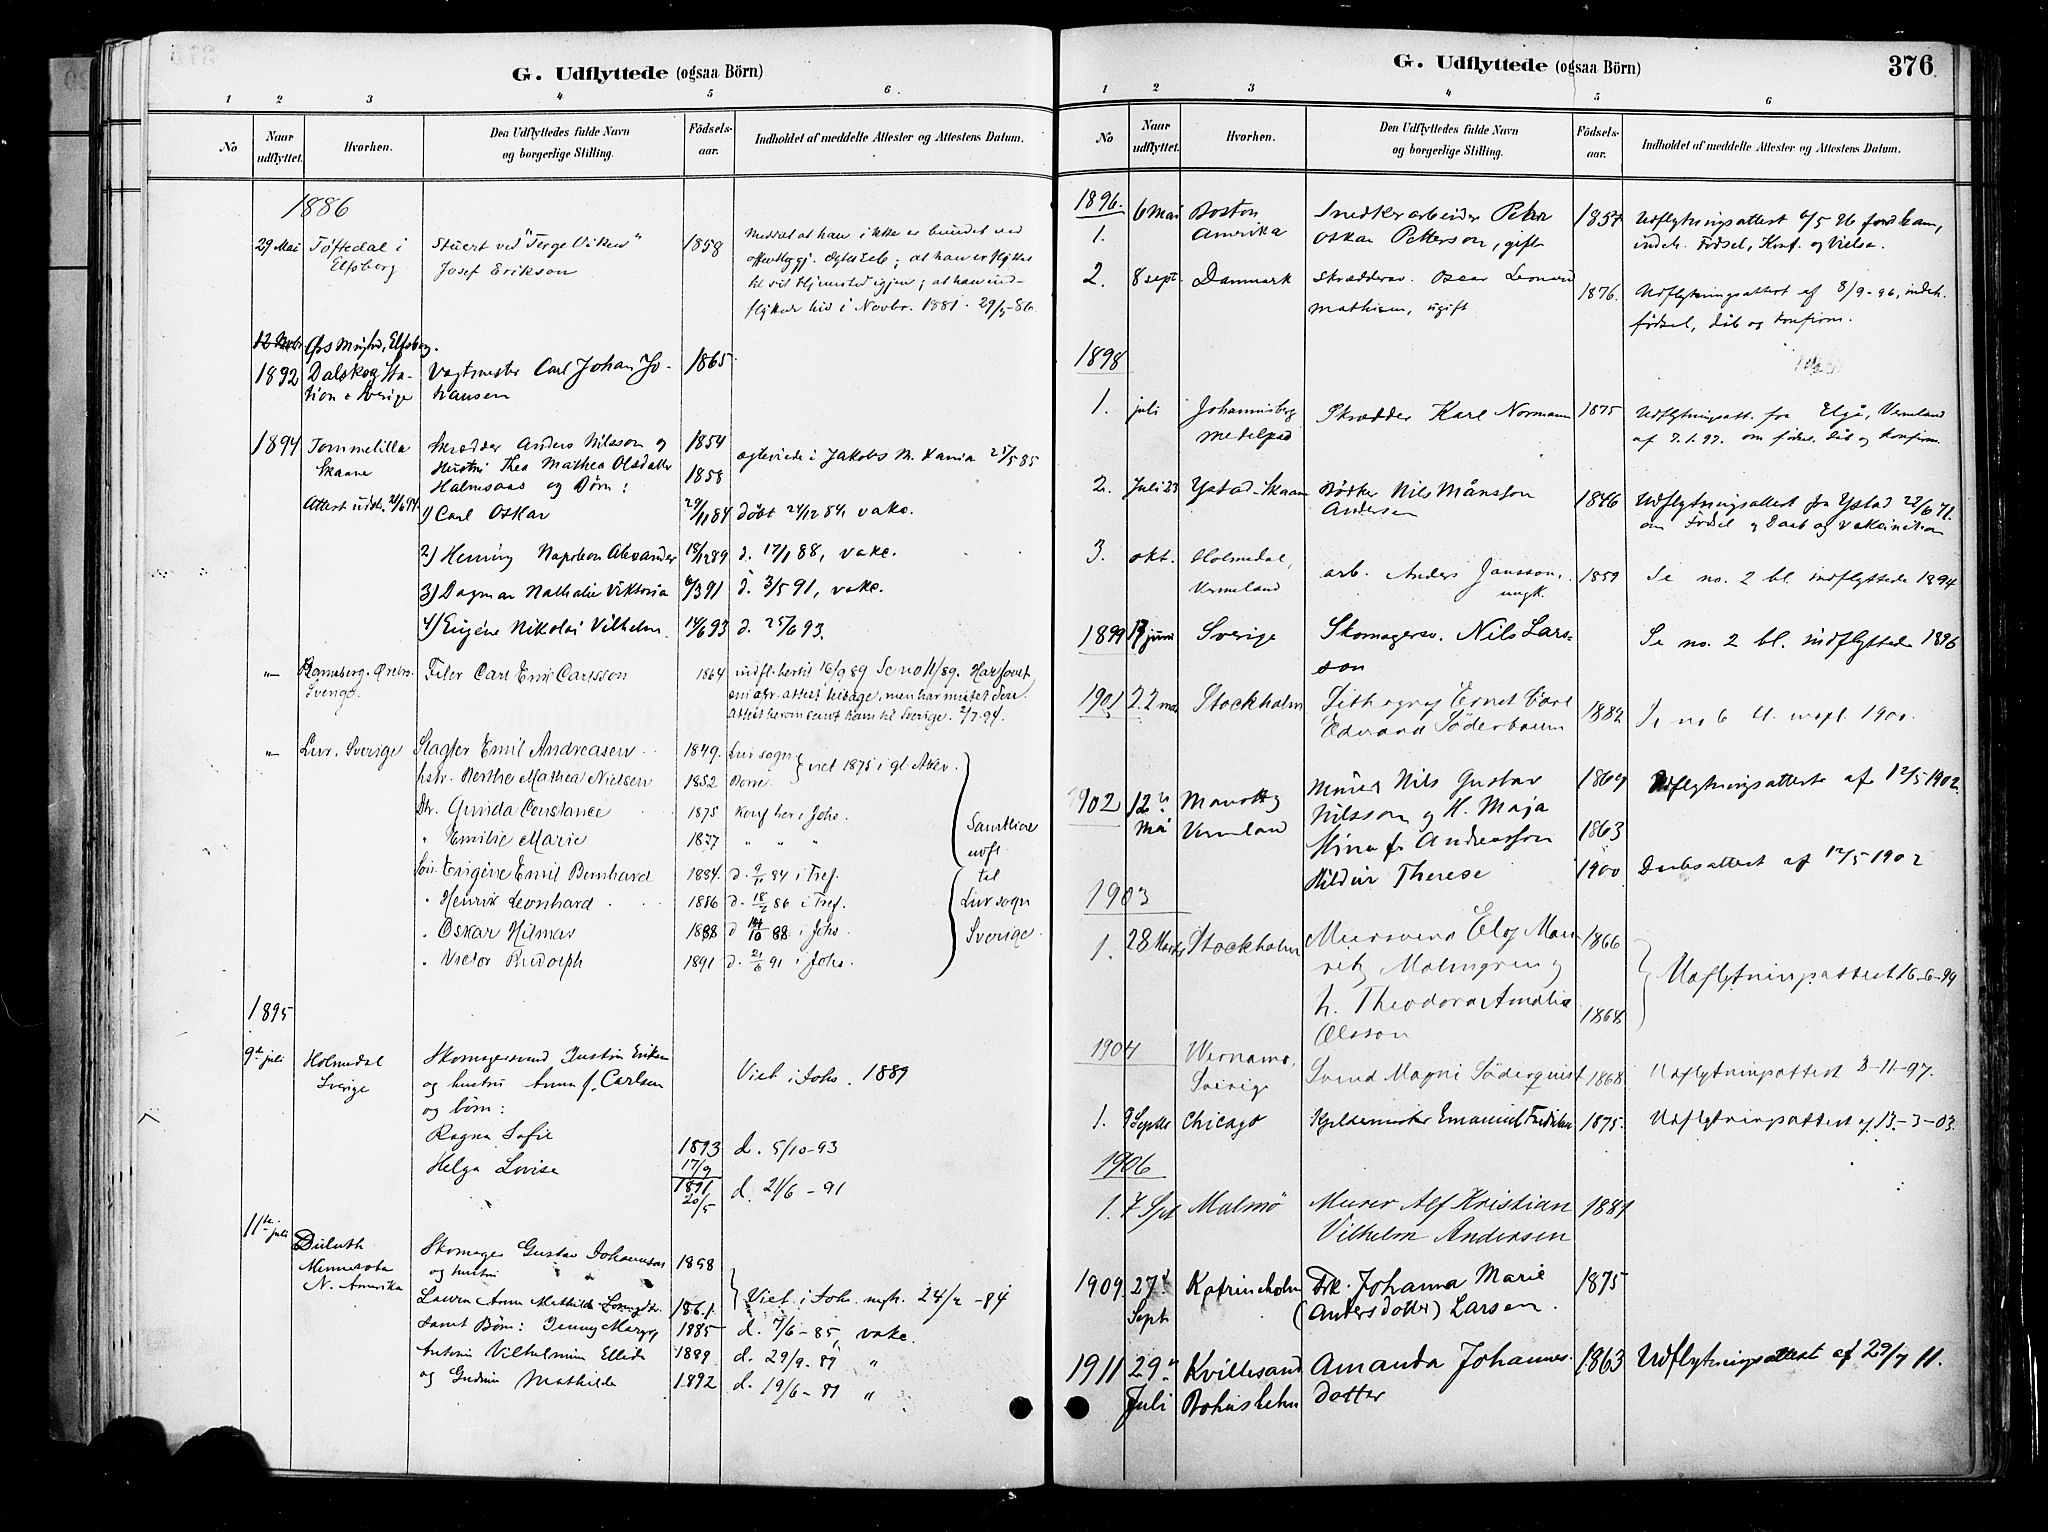 G. Udflyttede (ogsaa Börn)
1 2 3 4 5 6.
No
Naar udflyttet.
Hvorhen.
Den Udflyttedes fulde Navn
og borgerlige Stilling.
Födsels-
aar.
Indholdet af meddelte Attester og Attestens Datum.
1886
29 Mai Töftedal i Elfsborg
Stuert ved "Terge Viken"
Josef Erikson
1858
Meddelt at han ikke er bundet ved
offentliggj. Ægtesk.; at han er
til sit Hjemsted igjen; at han ind-
hid i Novbr. 1881. 29/5-86.
1892 Dalskog Sta-
tion i Sverige
Vagtmester Carl Johan Jo-
hansen
1865
1894 Tommelilla
Skaane
Attest udst. 21/6 94.
Skrædder Anders Nilsson og 1854
Hustru Thea Mathea Olsdatter
Halmsaas og Børn: 1858
ægteviede i Jakobs M. Xania 25/5 85
1) Carl Oskar 29/11 84 döbt 24/12 84, vakc.
2) Henning Napoleon Alexander 18/12 89 d. 17/1 88, vakc.
3) Dagmar Nathalie Viktoria 6/3 91 d. 3/5 91, vakc.
4) Eugéne Nikolai Vilhelm. 14/6 93 d. 25/6 93.
"— Ramsberg. Örebro.
Sverige.
Filer Carl Emil Carlsson 1864
indfl. hertil 16/9 89 Se no 11/89. Har
attest tilbage, men har mistet den.
Attest herom sendt ham til Sverige. 2/7.94.
"— Lur. Sverige
Slagter Emil Andreasen 1849. Lur sogn
hstr. Berthe Mathea Nielsen 1852 Borre
viet 1875 i gl. Aker.
Dtr. Gunda Constance 1875 Konf her i Johs.
" Emilie Marie 1877 " " "
Sön. Eugène Emil Bernhard 1884. d. 9/11 84 i Tref.
" Henrik Leonhard 1886 d. 18/2 86 i Tref.
" Oskar Hilmar 1888 d 14/10 88 i Johs.
" Victor Rudolph 1891 d. 21/6 91 i Johs.
Samtlige
udfl.
til
Lur sogn
Sverige.
1895
9de juli Holmedal
Sverige
Skomagersvend Justin Eriksen
og hustru Anna f. Carlsen
og börn:
Viet i Johs. 1889
Ragna Sofie 1893 17/9 d. 5/10-93
Helga Lovise 1891 20/5 d. 21/6 - 91
11te juli Duluth
Minnesota
N. Amerika
Skomager Gustav Johannson 1858
og hustru
Laura Anna Mathilde 1861.
Viet i Johs. mgh. 24/2 -84
samt Börn: Jenny 1885 d. 7/6 - 85, vakc.
Vilhelmine Ellida 1889 d. 29/9 - 89 "
og Gudrun Mathilde 1892 d. 19/6 - 89 "
G. Udflyttede (ogsaa Börn) 376
1 2 3 4 5 6
No
Naar udflyttet.
Hvorhen.
Den Udflyttedes fulde Navn
og borgerlige Stilling.
Födsels-
aar.
Indholdet af meddelte Attester og Attestens Datum.
1896.
1. 6 Mai Boston
Amerika
Snedkerarbeider Peter
Oskar Petterson, gift
1857
Udflytningsattest 6/5 96 for ham,
indeh. Födsel, Konf. og Vielse.
2. 8 sept. Danmark
Skrædderar. Oscar Leonard
Mathisen, ugift
1876.
Udflytningsattest af 8/9-96, indeh.
födsel, dåb og konfirm.
1898
1. juli Johannisberg
Medelpad
Skrædder Karl Normann 1875
Udflytningsatt. fra Elgå, Vermland
af 7.1.97. om födsel, dåb og konfirm.
2. Juli 23 Ystad - Skaane
Bödker Nils Månsson
Andersen
1846
Udflytningsattest fra Ystad 22/6 71.
om Födsel og Daab og vakcination
3. okt. Holmedal,
Vermeland
arb. Anders Jansson,
ungk.
1859
Se no. 2 bl. indflyttede 1894
1899 17 juni Sverige
Skomagersv. Nils Lars-
son
Se no. 2 bl. indflyttede 1896
1901 22 mai Stockholm
Lithograf Ernst Carl
Edvard Söderbaum
1882
Se no 6 bl. indfl. 1900.
1902 12te Mai
Vermland
Murer Nils Gustav
Nilsson og H. Maja
Stina f. Andreasson
Hildur Therese
1869
1863
1900
Udflytningsattest af 12/5 1902.
Daabsattest af 12/5 1902
1903
1. 28 Marts Stockholm
Murersvend Elof Mau-
ritz Malmgren og
h. Theodora Amalia
Olsson
1866
1868
Udflytningsattest 16-6-99
1904
Wernamo,
Sverige
Svend Magni Söderquist 1868. Udflytningsattest 3-11-97.
1. 9 Septbr Chicago Emanuel Fredriksen 1875. Udflytningsattest af 13.-3-03.
1906
1. 7 Spt Malmö
Murer Alf Kristian
Vilhelm Andersen
1881
1909. 27de
Sept
Katrineholm
Frk. Johanna Marie
(Andersdotter) Larsen.
1875
1911 29de
Juli
Kvillesand
Bohuslehn
Amanda Johannes-
dotter
1863
Udflytningsattest af 29/7 11.